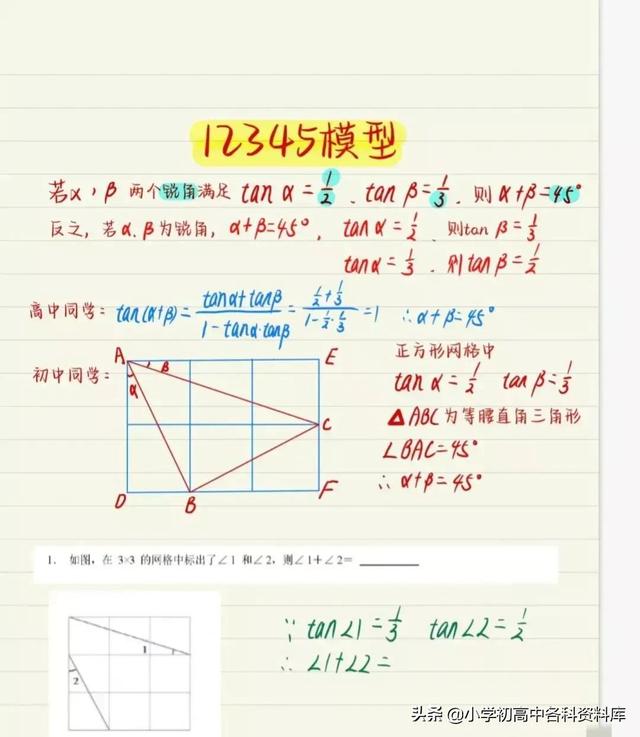 12345模型
若α，β 两个锐角满足 tan α=1/2 、tan β=1/3 、则 α+β=45°
反之，若α、β为锐角，α+β=45°，tanα=1/2、则tanβ=1/3
tanα=1/3、则tanβ=1/2
高中同学：tan(α+β)=(tanα+tanβ)/(1-tanα·tanβ)=(1/2+1/3)/(1-1/2·1/3)=1 ∴α+β=45°
初中同学：
A
E
α
β
C
D
B
F
正方形网格中
tanα=1/2 tanβ=1/3
△ABC为等腰直角三角形
∠BAC=45°
∴α+β=45°
1. 如图，在 3×3 的网格中标出了∠1 和∠2，则∠1＋∠2=
1
2
∵tan∠1=1/3 tan∠2=1/2
∴∠1+∠2=
头条 @小学初高中各科资料库